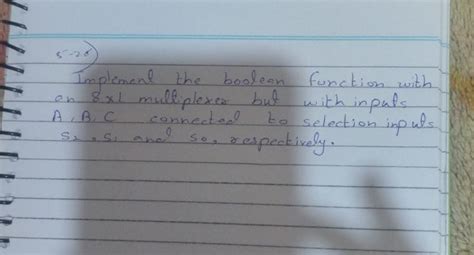 5-28)
Implement the boolean function with
an 8x1 multiplexer but with inputs
A, B, C connected to selection inputs
S2, S1 and S0, respectively.